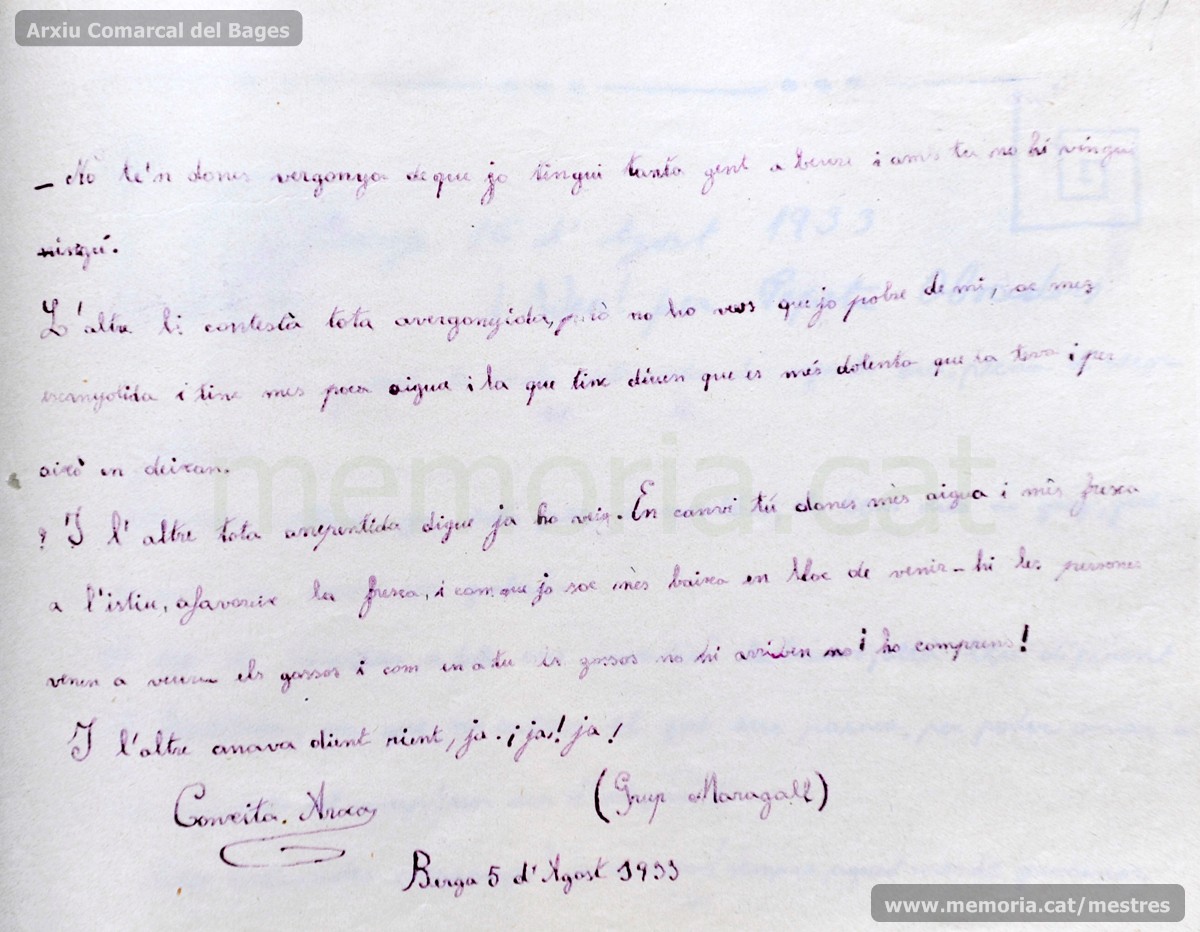 Arxiu Comarcal del Bages
11
- No te'n dones vergonya de que jo tingui tanta gent a beure i amb tu no hi vingui
ningú.
L'altre li contestà tota avergonyida, però no ho veus que jo pobre de mi, soc mes
escanyolida i tinc mes poca aigua i la que tinc diuen que es més dolenta que la teva i per
això en deixan.
? I l'altre tota arrepentida digue ja ho veig. En canvi tú dones mès aigua i mês fresca
a l'istiu, afavoreix la fresca, i com que jo soc mès baixa en lloc de venir-hi les persones
venen a veure els gossos i com en a tu els gossos no hi arriben no i ho comprens!
I l'altre anava dient rient, ja. ¡ja! ja!
(Grup Maragall)
Berga 5 d'Agost 1933
memoria.cat
www.memoria.cat/mestres